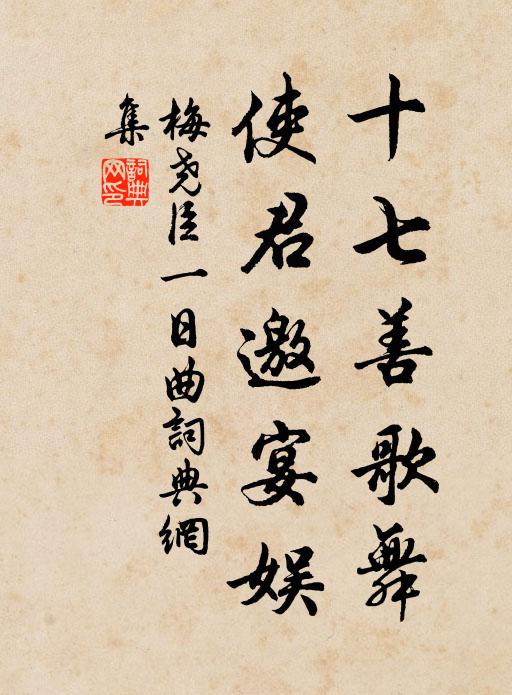 十七善歌舞
使君邀宴娱
梅尧臣一日曲詞典網
集
詞典網印